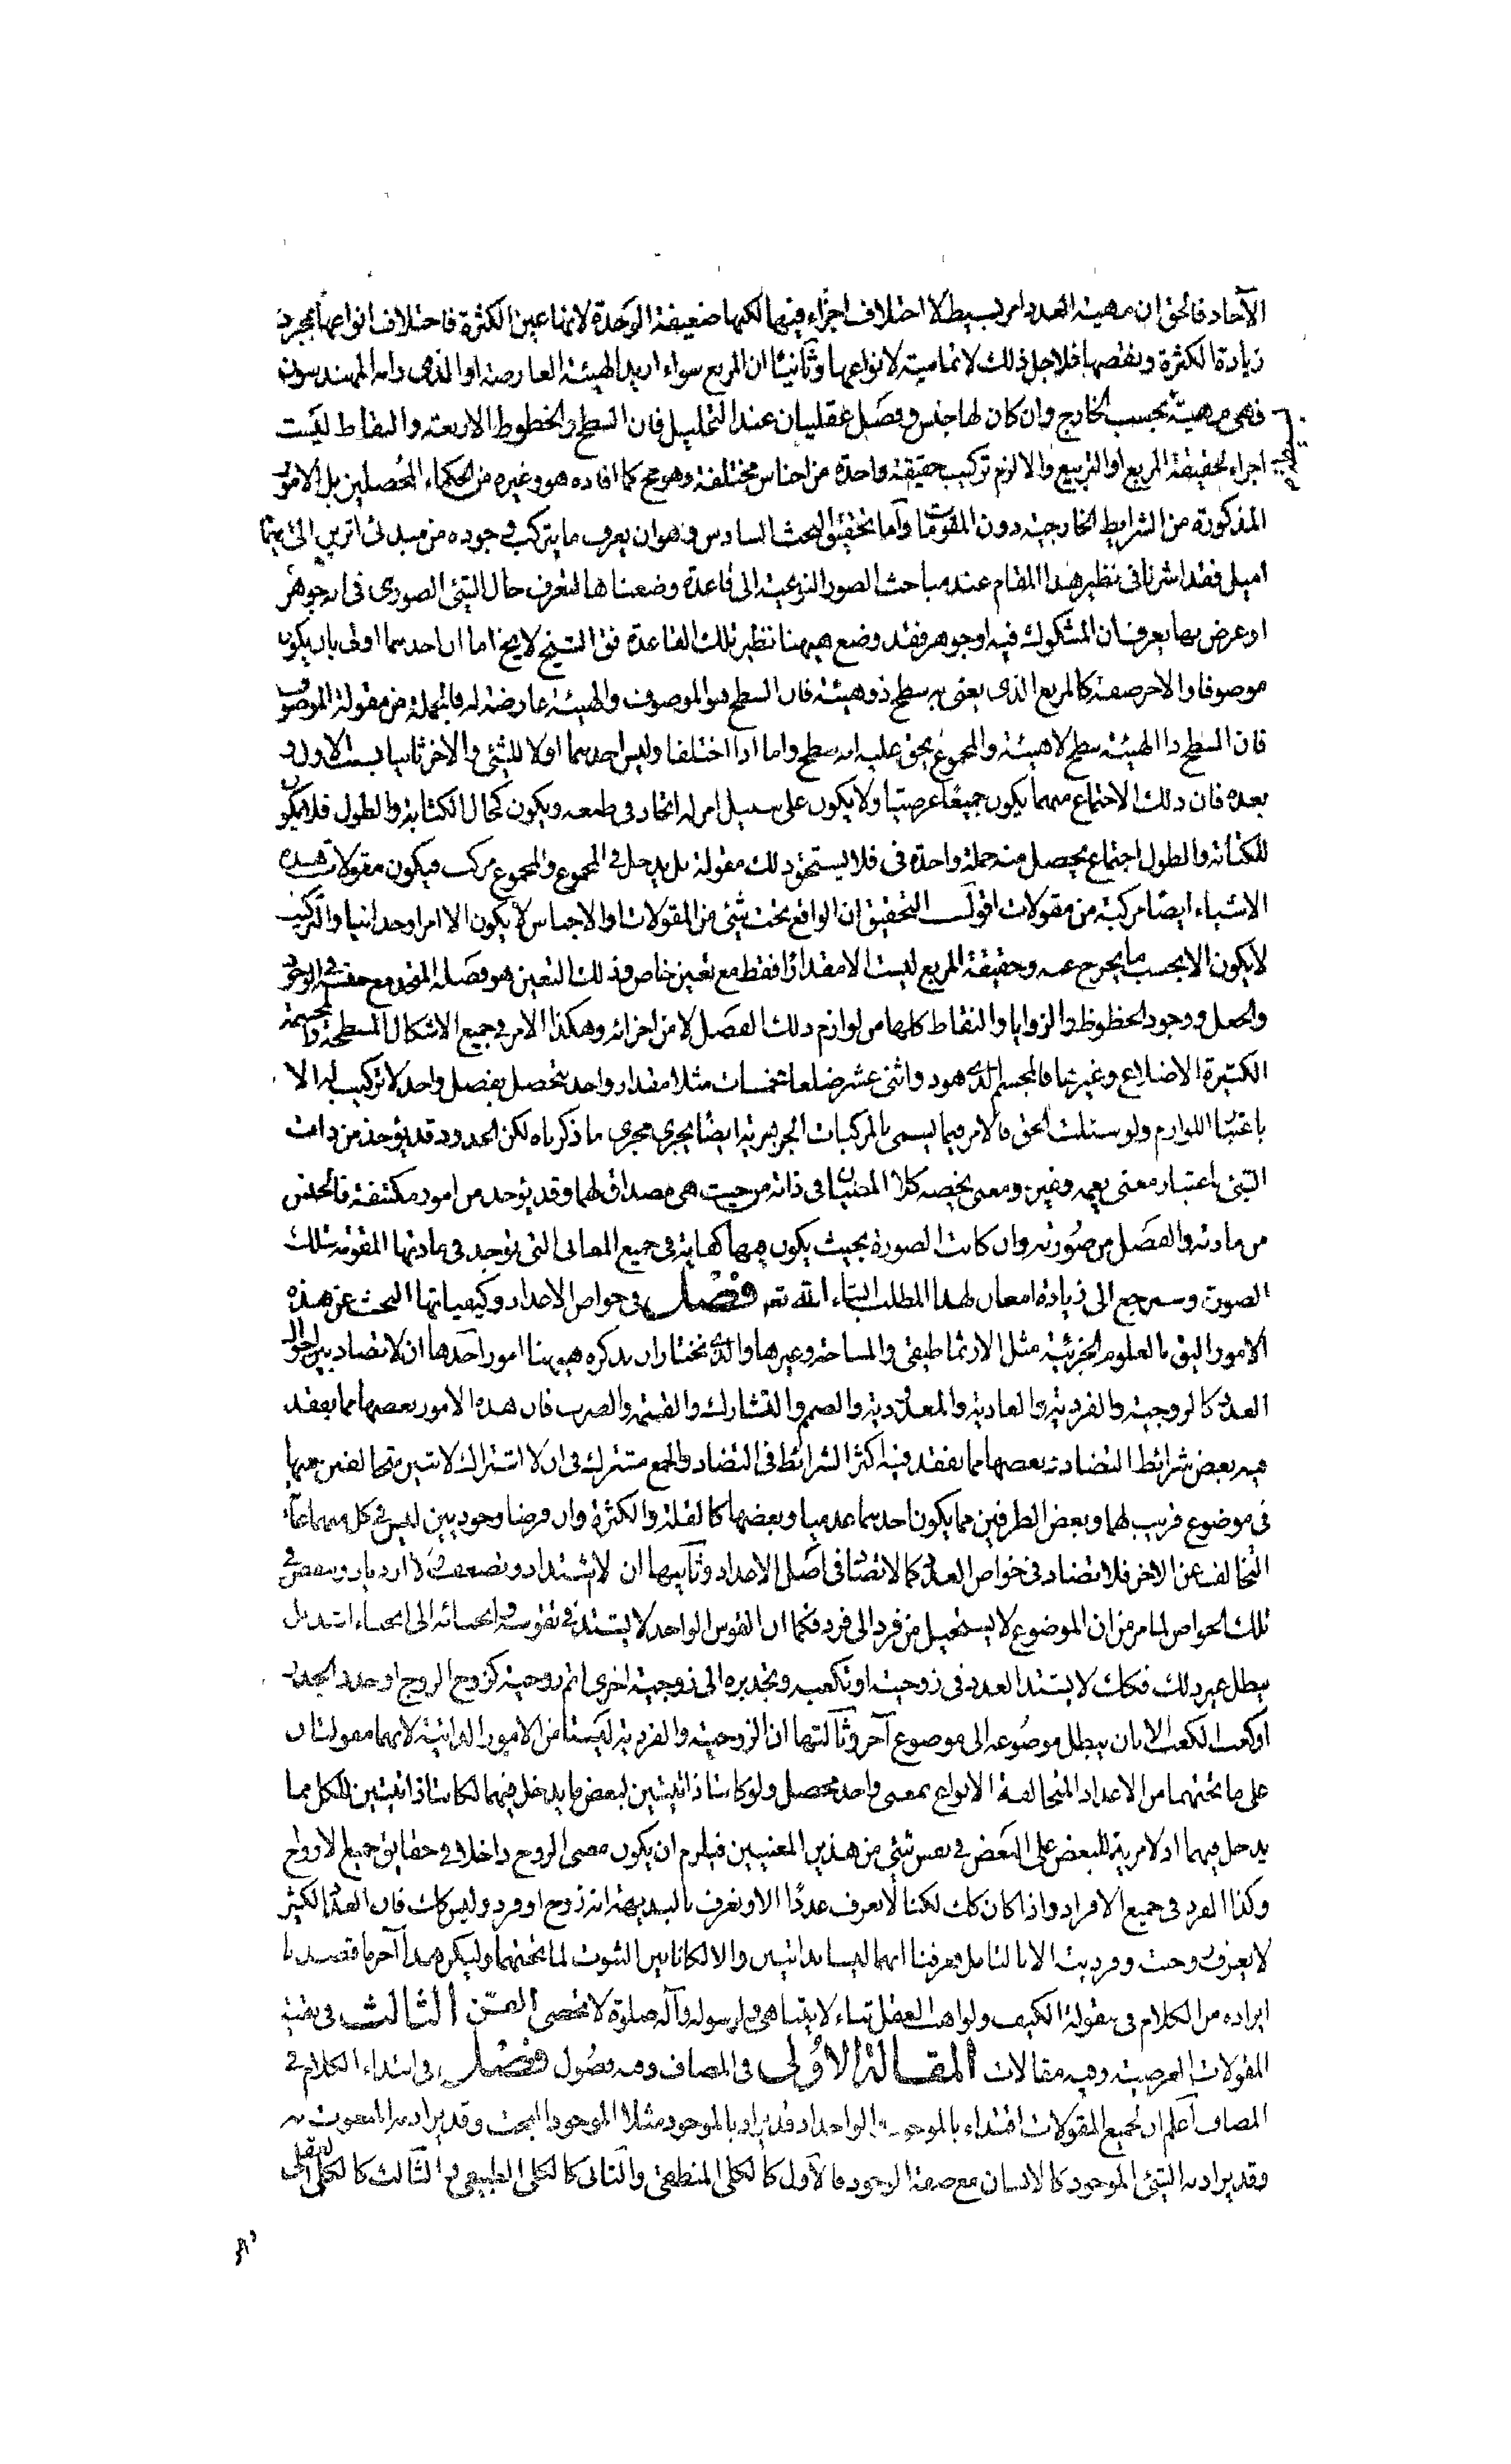 الآحاد فالحق ان مهية العدد امر بسيط لا اختلاف اجزاء فيها لكنها ضعيفة الوحدة لانها عين الكثرة فاختلاف انواعها بمجرد
زيادة الكثرة ونقصها فلاجل ذلك لا تمامية لانواعها وثانيا ان المربع سواء اريد الهيئة العارضة او الذى رامه المهندسون
فهى مهية بحسب الخارج وان كان لها جنس وفصل عقليان عند التحليل فان السطح والخطوط الاربعة والنقاط ليست
اجزاء لحقيقة المربع او التربيع والا لزم تركيب حقيقة واحدة من اجناس مختلفة وهو مح كما افاده هو وغيره من الحكماء المحصلين بل الامور
المذكورة من الشرايط الخارجية دون المقومات واما تحقيق البحث السادس وهو ان يعرف ما يتركب وجوده من مبدئى اثرين الى ايهما
اميل فقد اشرنا فى نظير هذا المقام عند مباحث الصور النوعية الى قاعدة وضعناها لتعرف حال الشئ الصورى فى انه جوهر
او عرض بها يعرف ان المشكوك فيه اجوهر فقد وضع هيهنا نظير تلك القاعدة فق الشيخ لا يخ اما ان احدهما اولى بان يكون
موصوفا والاخر صفة كالمربع الذى يعنى به سطح ذو هيئة فان السطح هو الموصوف والهيئة عارضة له فالجملة من مقولة الموصوف
فان السطح ذا الهيئة سطح لا هيئة والمجموع يحق عليه انه سطح واما اذا اختلفا وليس احدهما اولا للشئ والاخر ثانيا بسبب الاول و
بعده فان ذلك الاجتماع مهما يكون جميعا عرضيا ولا يكون على سبيل امر له اتحاد فى طبعه ويكون كحال الكتابة والطول فلا يكون
للكتابة والطول اجتماع يحصل منه جملة واحدة فى فلا يستحق ذلك مقولة بل يدخل فى المجموع والمجموع مركب فيكون مقولات هذه
الاشياء ايضا مركبة من مقولات اقول التحقيق ان الواقع تحت شئ من المقولات او الاجناس لا يكون الا امرا وحدانيا والتركيب
لا يكون الا بحسب ما يخرج عنه وحقيقة المربع ليست الا مقدارا فقط مع تعين خاص وذلك التعين هو فصله المتحد مع جنسه فى الوجود
والجعل ووجود الخطوط والزوايا والنقاط كلها من لوازم ذلك الفصل لا من اجزائه وهكذا الامر فى جميع الاشكال المسطحة والمجسمة
الكثيرة الاضلاع وغيرها فالمجسم الذى هو ذو اثنى عشر ضلعا مخمسات مثلا مقدار واحد يتحصل بفصل واحد لا تركيب له الا
باعتبار اللوازم ولو سئلت الحق فالامر فيما يسمى بالمركبات الجوهرية ايضا يجرى مجرى ما ذكرناه لكن الحدود قد يؤخذ من ذات
الشئ باعتبار معنى يعمه وغيره ومعنى يخصه كلا المعنيان فى ذاته من حيث هى مصداق لهما وقد يؤخذ من امور مكتنفة فالجنس
من مادته والفصل من صورته وان كانت الصورة بحيث يكون فيها كفاية فى جميع المعانى التى توجد فى مادتها المقومة بتلك
الصورة وسنرجع الى زيادة امعان لهذا المطلب انشاء الله تعه فصل فى خواص الاعداد وكيفياتها البحث عن هذه
الامور اليق بالعلوم الجزئية مثل الارثماطيقى والمساحة وغيرها والذى نختار ان نذكره هيهنا امور احدها ان لا تضاد بين احوال
العدد كالزوجية والفردية والعادية والمعدودية والصمم والتشارك والقسمة والضرب فان هذه الامور بعضها مما يفقد
فيه بعض شرائط التضاد وبعضها مما يفقد فيه اكثر الشرائط فى التضاد والجمع مشترك فى ان لا اشتراك لاثنين متخالفين فيها
فى موضوع قريب لهما وبعض الطرفين مما يكون احدهما عدميا وبعضها كالقلة والكثرة وان فرضا وجوديين ليس فى كل منهما غاية
التخالف عن الاخر فلا تضاد فى خواص العدد كما لا تضاد فى اصل الاعداد وثانيها ان لا اشتداد وتضعف ولا ازدياد وتنقص فى
تلك الخواص لما مر من ان الموضوع لا يستحيل من فرد الى فرد فكما ان القوس الواحد لا يشتد فى تقوسه وانحنائه الى انحناء اشد بل
يبطل عند ذلك فكك لا يشتد العدد فى زوجيته او تكعبه وتجذيره الى زوجية اخرى اتم زوجية كزوج الزوج او جذر الجذر
او كعب الكعب الا بان يبطل موضوعه الى موضوع آخر وثالثها ان الزوجية والفردية ليستا من الامور الذاتية لانهما مقولتان
على ما تحتهما من الاعداد المتخالفة الانواع بمعنى واحد محصل ولو كانتا ذاتيتين لبعض ما يدخل فيهما لكانتا ذاتيتين للكل مما
يدخل فيهما اذ لا مزية للبعض على البعض فى نفس شئ من هذين المعنيين فيلزم ان يكون معنى الزوج داخلا فى حقايق جميع الازواج
وكذا الفرد فى جميع الافراد واذا كان كك لكنا لا نعرف عددا الا ونعرف بالبديهة انه زوج او فرد وليس كك فان العدد الكثير
لا يعرف زوجيته وفرديته الا بالتامل فعرفنا انهما ليسا بذاتيين والا لكانا بينى الثبوت لما تحتهما وليكن هذا آخر ما قصدنا
ايراده من الكلام فى مقولة الكيف ولواهب العقل ثناء لا يتناهى ولرسوله وآله صلوة لا تحصى الفن الثالث فى بقية
المقولات العرضية وفيه مقالات المقالة الاولى فى المضاف وفيه فصول فصل فى ابتداء الكلام فى
المضاف اعلم ان لجميع المقولات اقتداء بالموجود والواحد اذ قد يراد بالموجود مثلا الموجود البحت وقد يراد به المنعوت به
وقد يراد به الشئ الموجود كالانسان مع صفة الوجود فالاول كالكلى المنطقى والثانى كالكلى الطبيعى والثالث كالكلى العقلى